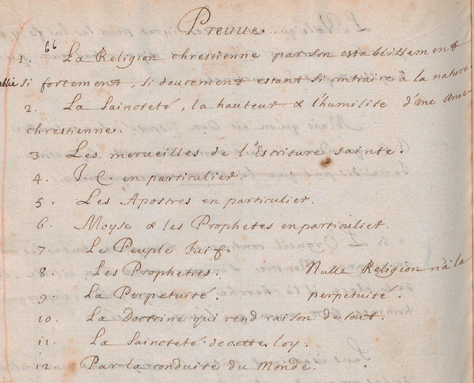 Preuue.
66
1. La Religion chrestienne par son establissement
si fortement, si doucement estant si contraire a la nature
2. La Sainoteté, la hauteur & l'humilité d'une ame
chrestienne.
3 Les merueilles de l'Escriture sainte.
4. J.C. en particulier.
5 Les Apostres en particulier.
6. Moyse & les Prophetes en particulier.
7 Le Peuple Juif.
8. Les Propheties. Nulle Religion n'a la
9. La Perpetuité. perpetuité.
10. La Doctrine qui rend raison de tout.
11. La Sainoteté de cette loy.
12. Par la conduite du Monde.